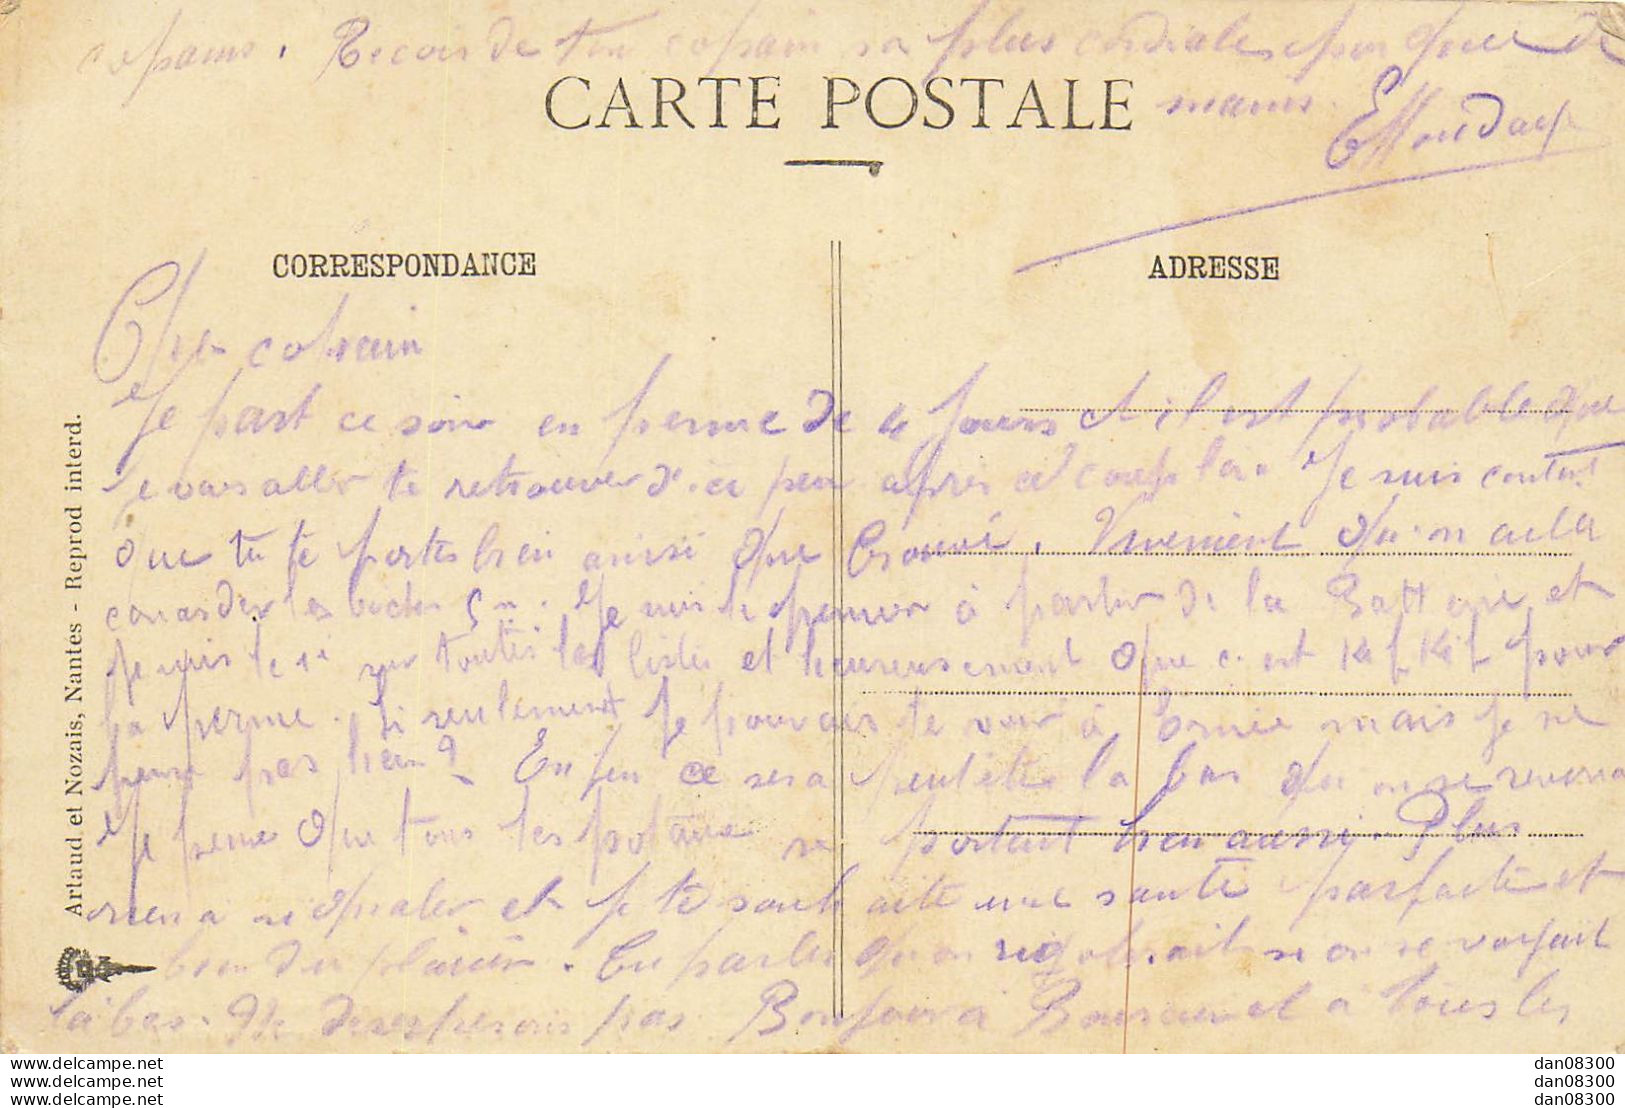 copains. Recois de ton copain sa plus cordiale de
mains.
CARTE POSTALE
CORRESPONDANCE
ADRESSE
Cher copain
Je part ce soir en perme de 4 jours et il est probable que
je vais aller te retrouver d'ici peu après ce coup la. Je suis content
que tu te portes bien ainsi que Vivement qu'on aille
les boches Je suis le premier à partir de la Batterie et
je suis le 1er sur toutes les listes et heureusement que c'est kif kif pour
la perme. Si seulement je pouvais te voir à mais je ne
pense pas hein? Enfin ce sera peut être la bas qu'on se reverra
Je pense que tous les poteaux se portent bien aussi. Plus
rien a signaler et je te souhaite une santé parfaite et
bien du plaisir. Tu parles qu'on rigolerait si on se voyait
là bas. Ne desesperons pas. Bonjour à et à tous les
Artaud et Nozais, Nantes - Reprod interd.
www.delcampe.net
www.delcampe.net
www.delcampe.net
dan08300
dan08300
dan08300